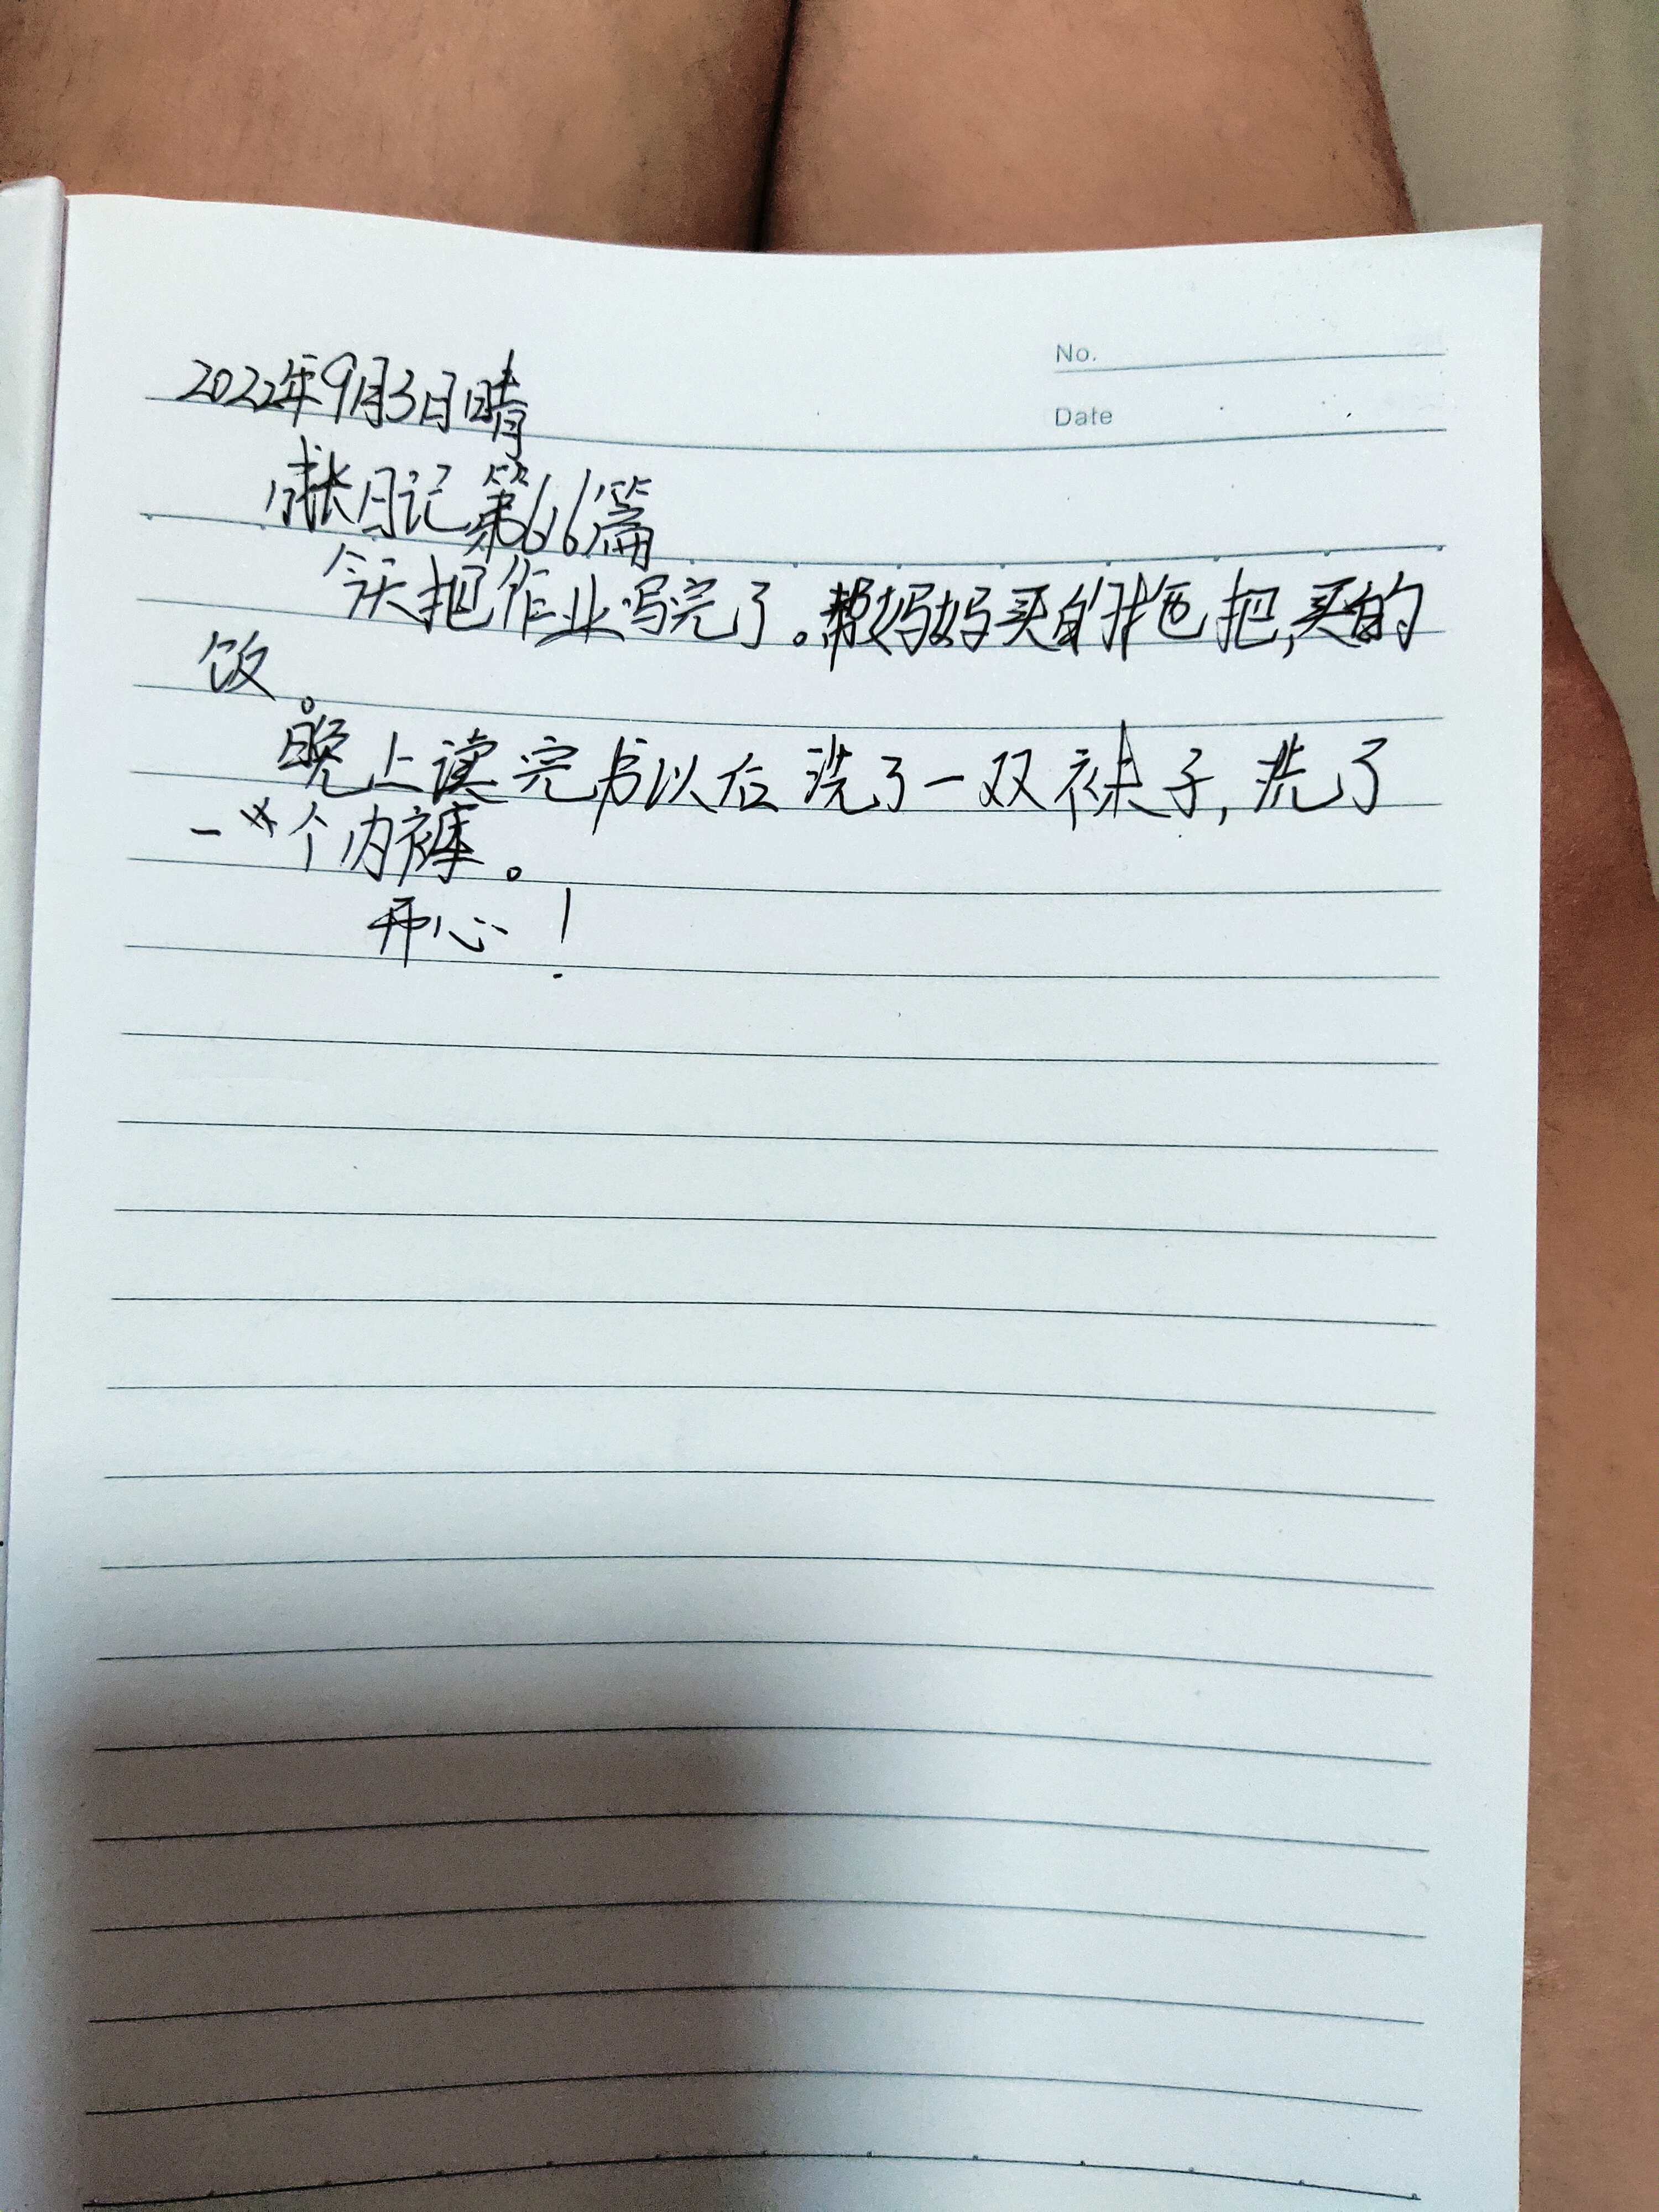 No.
Date
2022年9月3日晴
日记第66篇
今天把作业写完了。帮妈妈买的拖把,买的
饭。
晚上读完书以后洗了一双袜子,洗了
一个内裤。
开心!